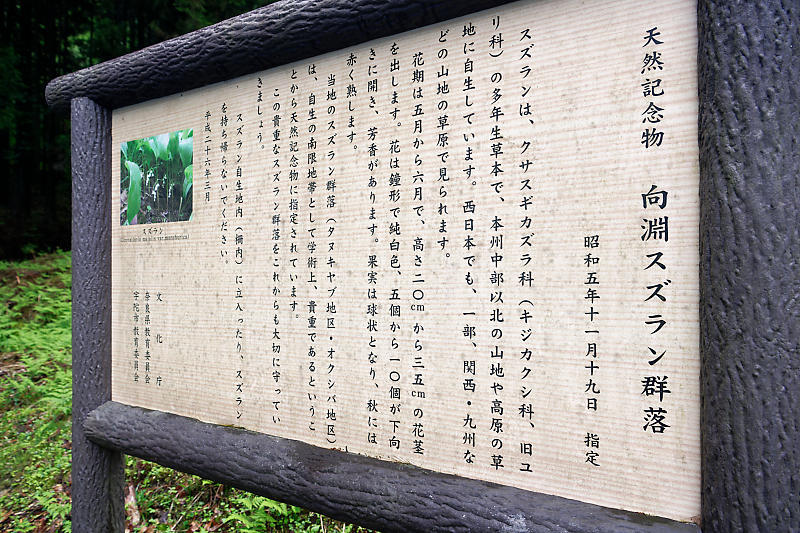 天然記念物　向淵スズラン群落
昭和五年十一月十九日　指定
スズランは、クサスギカズラ科（キジカクシ科、旧ユ
リ科）の多年生草本で、本州中部以北の山地や高原の草
地に自生しています。西日本でも、一部、関西・九州な
どの山地の草原で見られます。
花期は五月から六月で、高さ二〇cmから三五cmの花茎
を出します。花は鐘形で純白色、五個から一〇個が下向
きに開き、芳香があります。果実は球状となり、秋には
赤く熟します。
当地のスズラン群落（タヌキヤブ地区・オクシバ地区）
は、自生の南限地帯として学術上、貴重であるというこ
とから天然記念物に指定されています。
この貴重なスズラン群落をこれからも大切に守ってい
きましょう。
スズラン自生地内（柵内）に立入ったり、スズラン
を持ち帰らないでください。
平成二十六年三月
スズラン
文化庁
奈良県教育委員会
宇陀市教育委員会